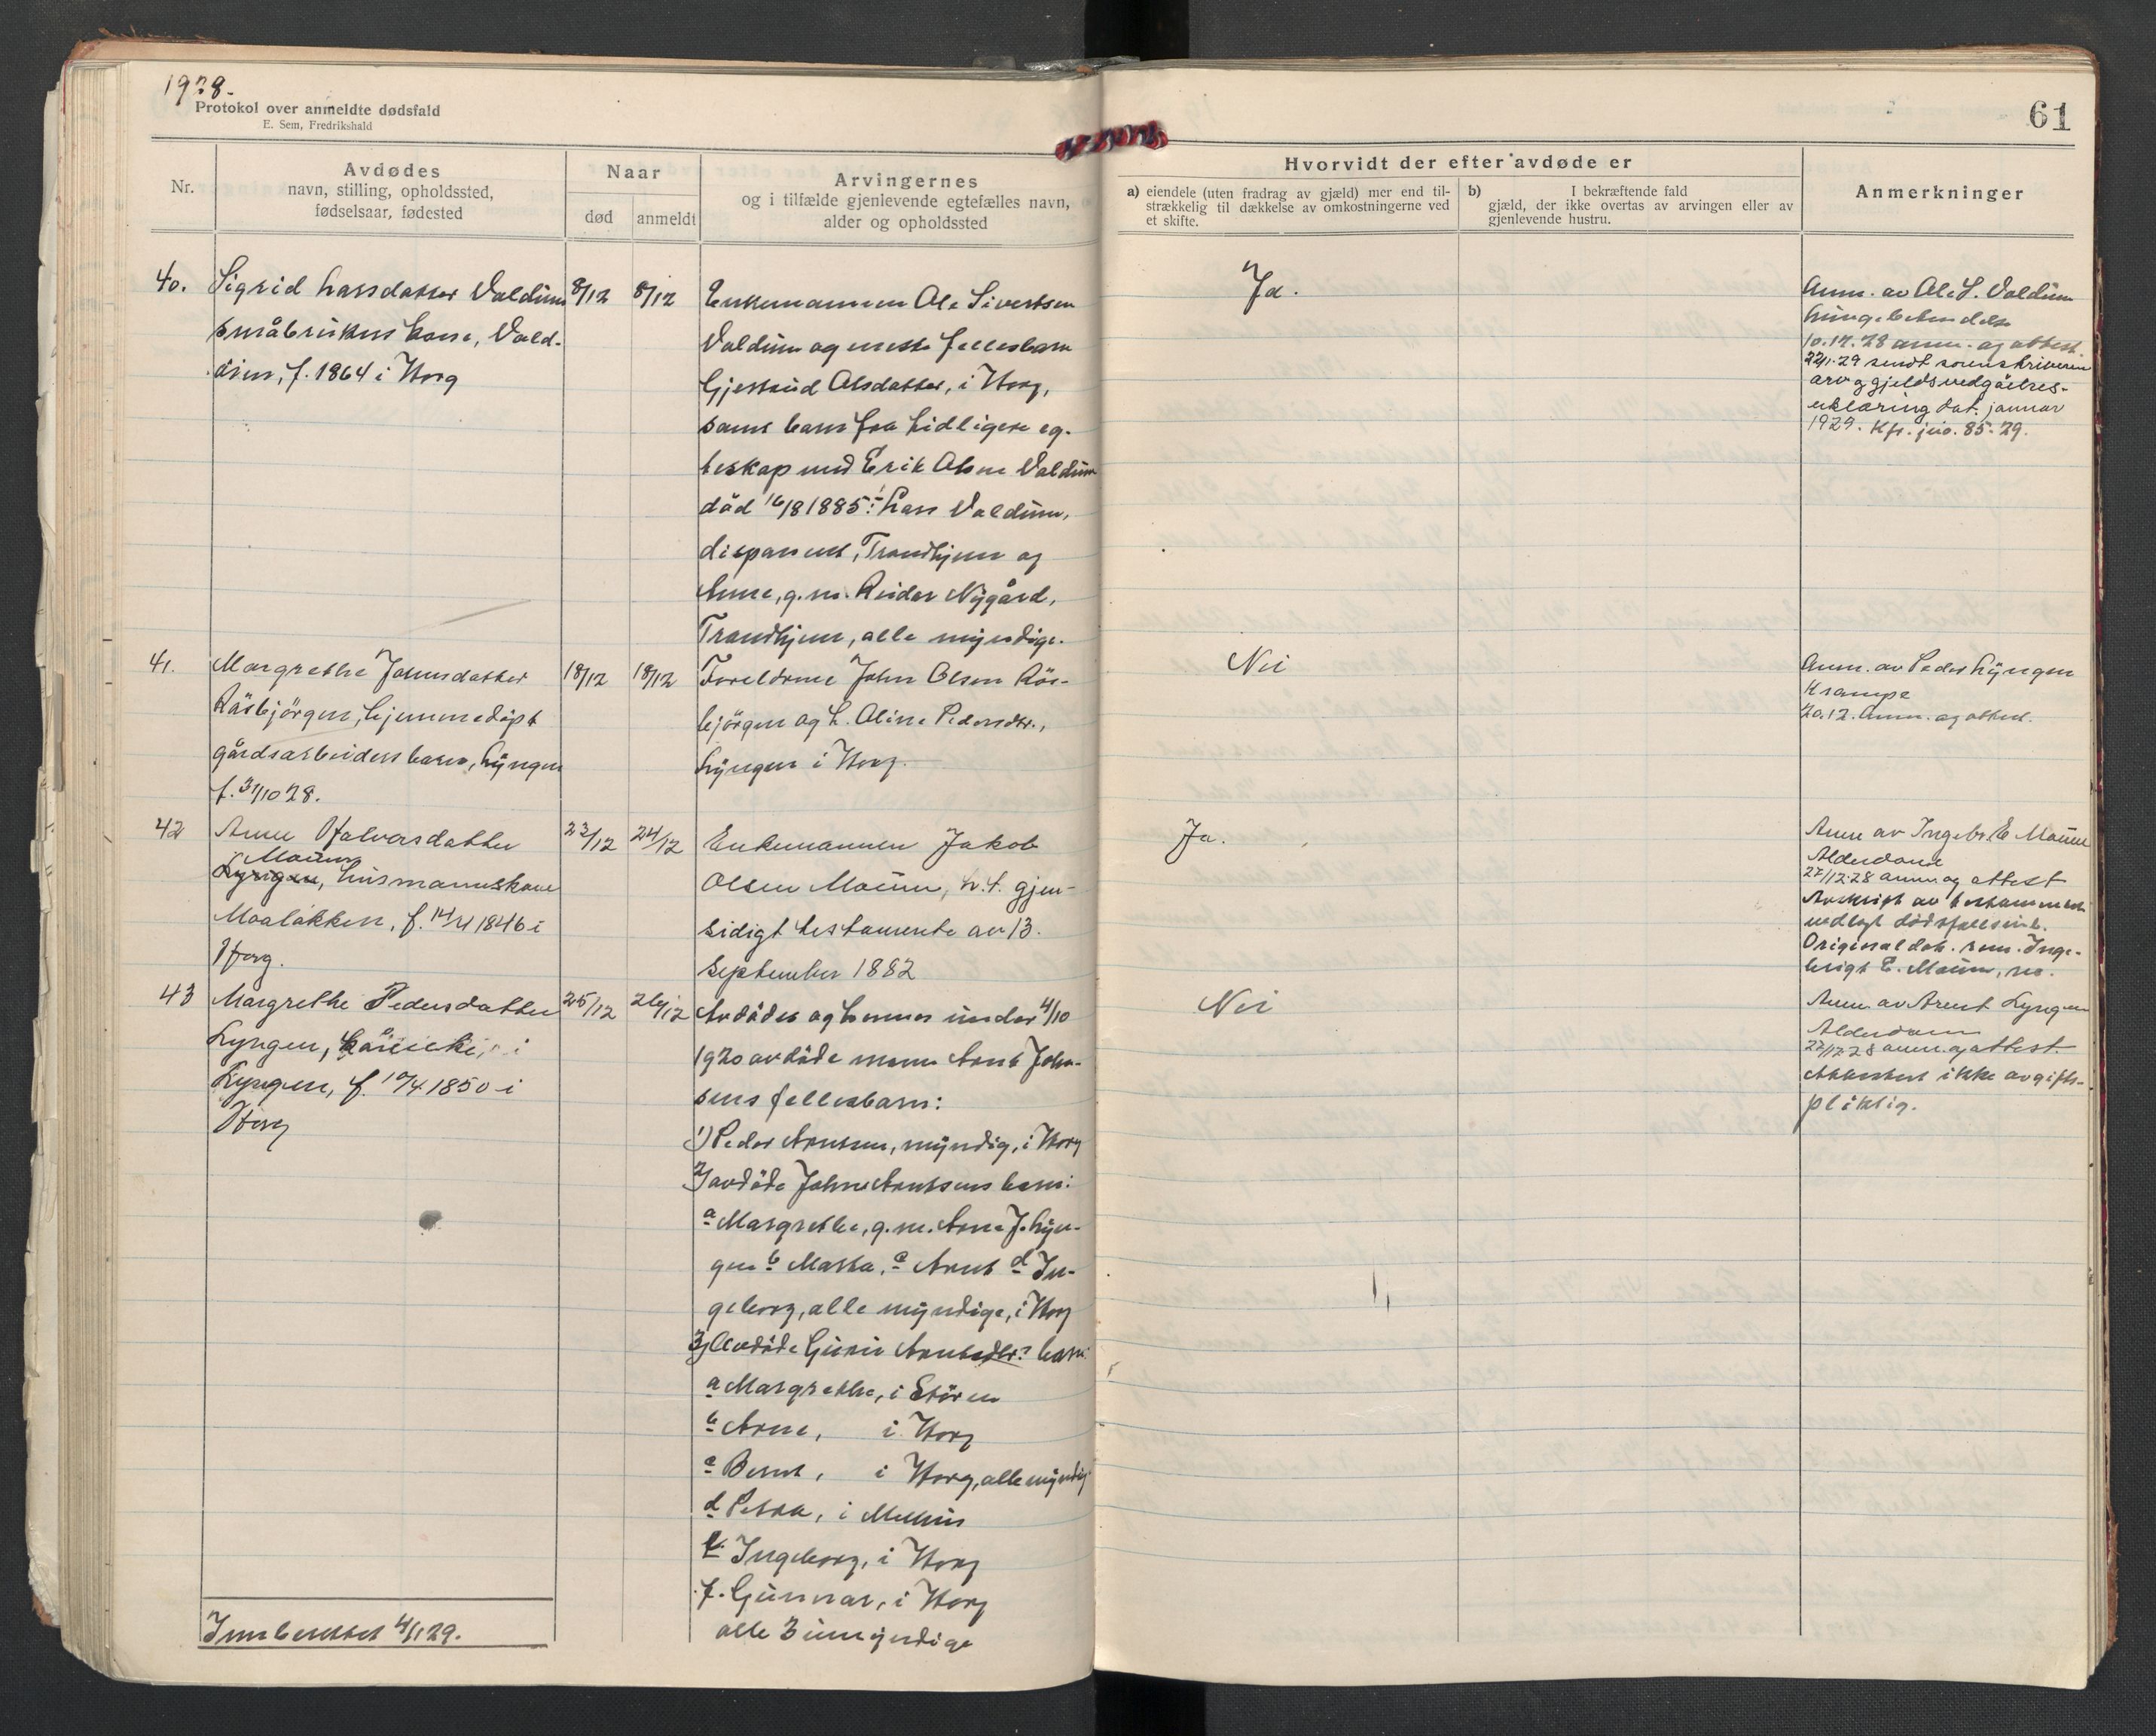 1928.
Protokol over anmeldte dødsfald
E. Sem, Fredrikshald
61
Nr.
Avdødes
navn, stilling, opholdssted,
fødselsaar, fødested
Naar
død
anmeldt
Arvingernes
og i tilfælde gjenlevende egtefælles navn,
alder og opholdssted
Hvorvidt der efter avdøde er
a) eiendele (uten fradrag av gjæld) mer end til-
strækkelig til dækkelse av omkostningerne ved
et skifte.
b) I bekræftende fald
gjæld, der ikke overtas av arvingen eller av
gjenlevende hustru.
Anmerkninger
40.
Sigrid Larsdatter Valdum
småbrukers kone, Vald-
dum, f. 1864 i Horg
8/12
8/12
Enkemannen Ole Sivertsen
Valdum og fellesbarn
Gjertrud Olsdatter, i Horg,
samt barn fra tidligere eg-
teskap med Erik Olsen Valdum
død 16/8 1885: Lars Valdum,
disponent, Trondhjem og
Anne, g.m. Reidar Nygård,
Trondhjem, alle myndige.
Ja.
Anm. av Ole S. Valdum
10.12.28 anm. og attest.
22/1-29 sendt sorenskriveren
arv og gjeldsvedgåelses-
erklæring dat. januar
1929. Kfr. jno. 85-29.
41.
Margrethe Johnsdatter
Råsbjörgen, hjemmedöpt
gårdsarbeiders barn, Lyngen
f. 31/10 28.
18/12
18/12
Foreldrene John Olsen Rös-
björgen og h. Oline Pedersdtr.,
Lyngen i Horg.
Nei
Anm. av Peder Lyngen
Krampe
20.12. Anm. og attest.
42
Anne Halvorsdatter
Moum
Lyngen, husmannskone
Moaløkken, f. 14/4 1846 i
Horg.
23/12
24/12
Enkemannen Jakob
Olsen Moum, h.t. gjen-
sidigt testamente av 13.
September 1882
Ja.
Anm av Ingebr. E Moum
Alderdom
27/12.28 anm. og attest
Avskrift av testamentet
vedlagt dødsfallsinb.
Original dok. rem. Inge-
brigt E. Moum,
43
Margrethe Pedersdatter
Lyngen, i
Lyngen, f. 10/4 1850 i
Horg
25/12
26/12
Avdødes og hennes under 4/10
1920 avdøde mann Arnt John-
sens fellesbarn:
1) Peder Arntsen, myndig, i Horg
2) avdøde John Arntsens barn:
a Margrethe, g.m. Arne J. Lyn-
gen b Marta, c Arnt d In-
geborg, alle myndige, i Horg
3) Avdøde Guru Arntsdtr.s barn:
a Margrethe, i Stören
b Arne, i Horg
c Bernt, i Horg, alle myndig
d Petra, i Melhus
e Ingeborg, i Horg
f. Gunnar, i Horg
alle 3 umyndige
Nei
Anm. av Arent Lyngen
Alderdom
27/12 28 anm. og attest.
Akkertert ikke avgifts-
pliktig.
Innberettet 4/1 29.